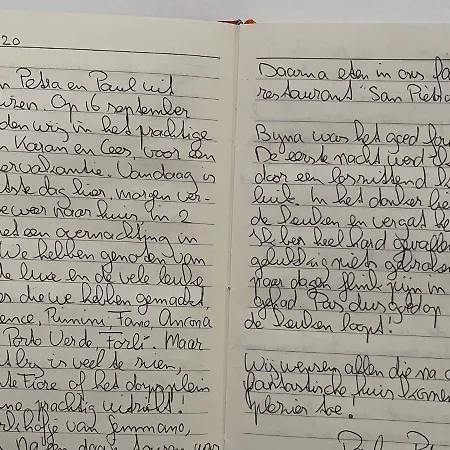 20
n Petra en Paul uit
uren. Op 16 september
den wij in het prachtige
n Karan en Cees, voor een
ervakantie. Vandaag is
tste dag hier, morgen ver-
we weer naar huis in 2
et een overnachting in
We hebben genoten van
de luxe en de vele leuke
es die we hebben gemaakt,
ence, Rimini, Fano, Ancona
Porto Verde, Forlì. Maar
is veel te zien,
te Fiore of het dorpsplein
no, prachtig uitzicht!
van Gemmano,
Daarna eten in ons fa
restaurant "San Pietro
Bijna was het goed
De eerste nacht werd
door een
luik. In het donker
de keuken en vergat he
Ik ben heel hard gevallen
gelukkig niets gebroken
paar dagen flink pijn in
gehad. Pas dus op
de keuken loopt!
Wij wensen allen die na o
fantastische huis komen
plezier toe.